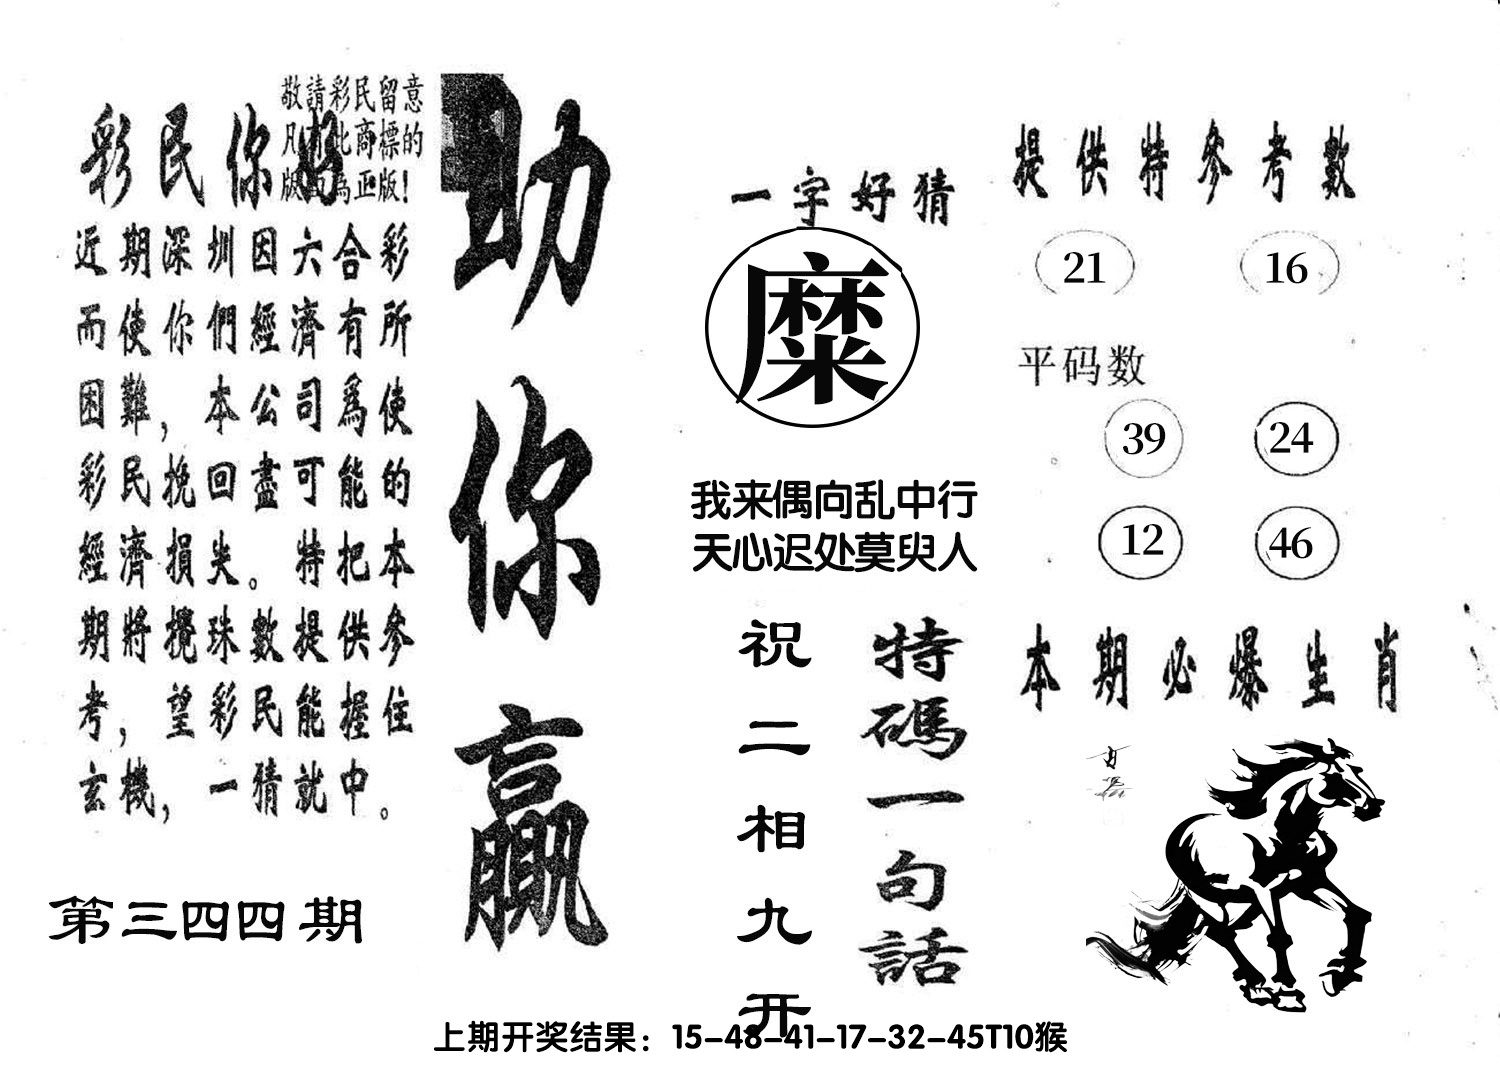 敬請彩民留意
凡有此商標的
版面為正版!
彩民你好
近期深圳因六合彩
而使你們經濟有所
困難，本公司爲使
彩民挽回盡可能的
經濟損失。特把本
期將攪珠數提供參
考，望彩民能握住
玄機，一猜就中。
第三四四期
助你贏
一字好猜
糜
我来偶向乱中行
天心迟处莫臾人
特碼一句話
祝二相九开
提供特參考數
21 16
平码数
39 24
12 46
本期必爆生肖
上期开奖结果：15-48-41-17-32-45T10猴